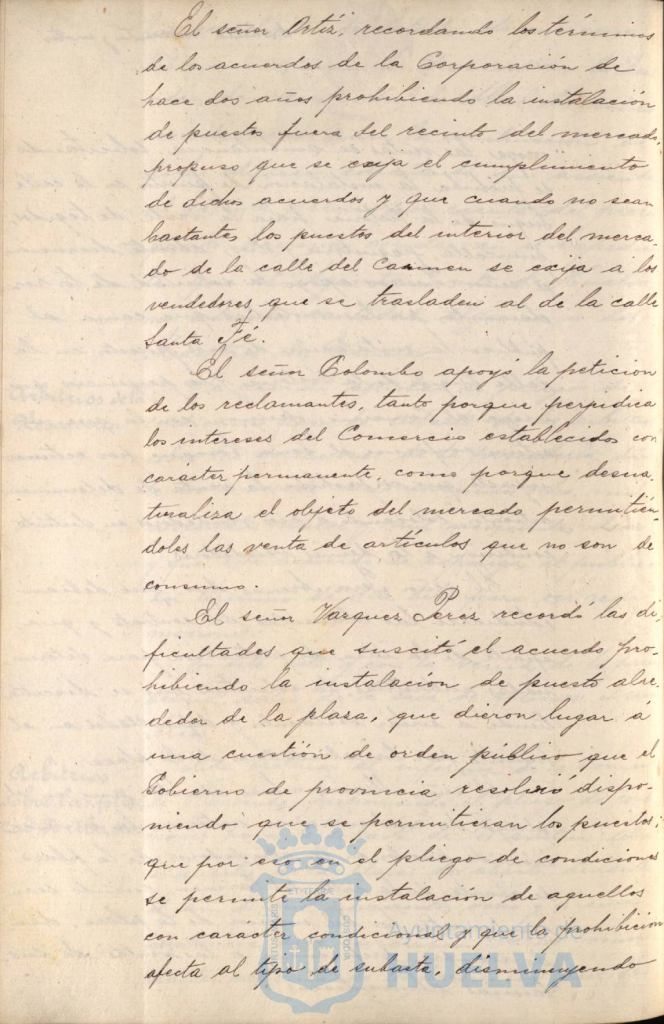 El señor Ortíz, recordando los términos
de los acuerdos de la Corporación de
hace dos años prohibiendo la instalación
de puestos fuera del recinto del mercado,
propuso que se exija el cumplimiento
de dichos acuerdos y que cuando no sean
bastantes los puestos del interior del merca-
do de la calle del Carmen se exija a los
vendedores que se trasladen al de la calle
Santa Fé.
El señor Colombo apoyó la peticion
de los reclamantes, tanto porque perjudica
los intereses del Comercio establecidos con
carácter permanente, como porque desna-
turaliza el objeto del mercado permitién-
doles las venta de artículos que no son de
consumo.
El señor Vazquez Perez recordó las di-
ficultades que suscitó el acuerdo pro-
hibiendo la instalación de puesto alre-
dedor de la plaza, que dieron lugar á
una cuestión de orden público que el
Gobierno de provincia resolvió dispo-
niendo que se permitieran los puestos;
que por eso en el pliego de condiciones
se permite la instalación de aquellos
con carácter condicional y que la prohibicion
afecta al tipo de subasta, disminuyendo
Ayuntamiento de
HUELVA